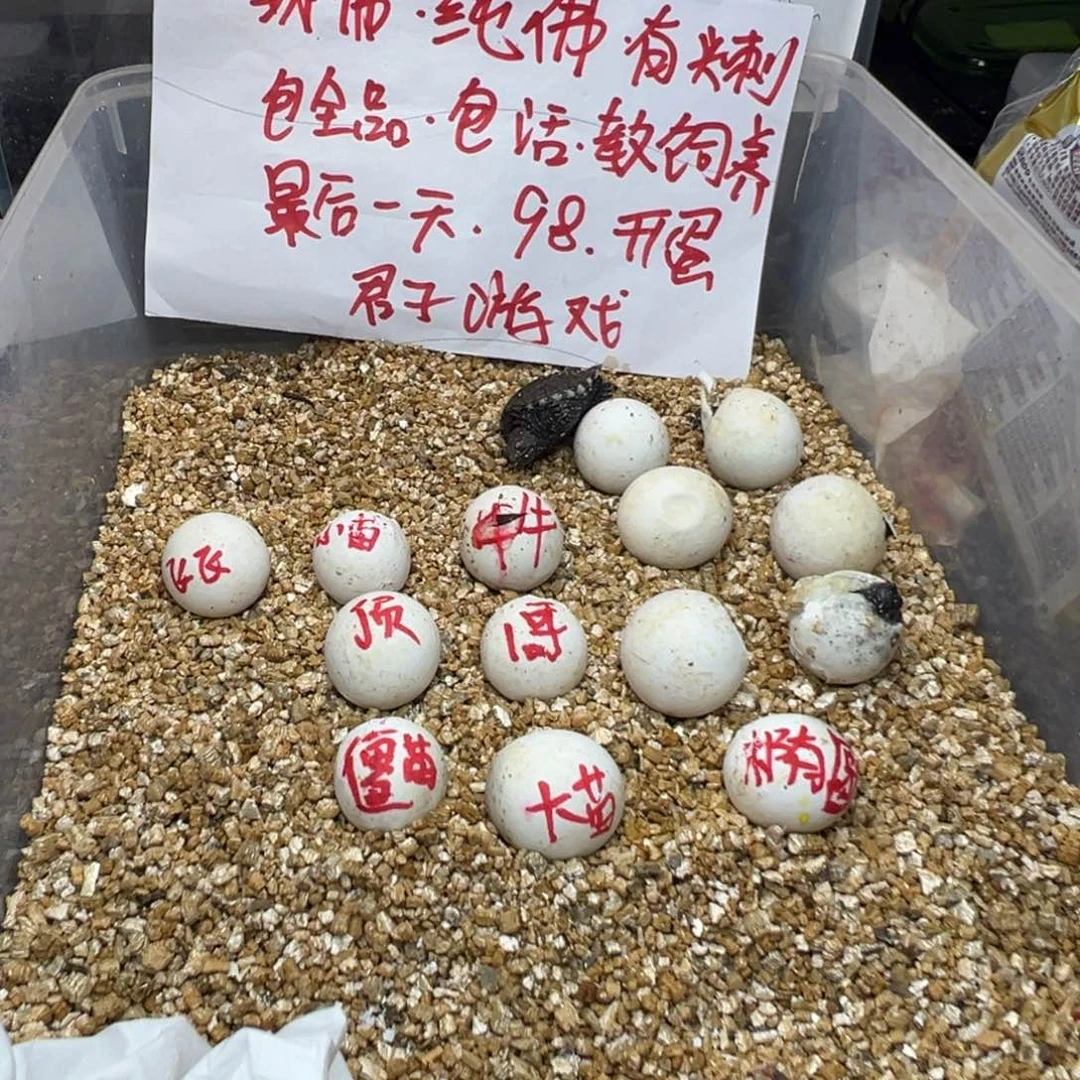 纯佛·有尖刺
包全品·包活·教饲养
最后一天.98.开蛋
君子游戏
飞飞
小苗
牛牛
顶
得
僵苗
大苗